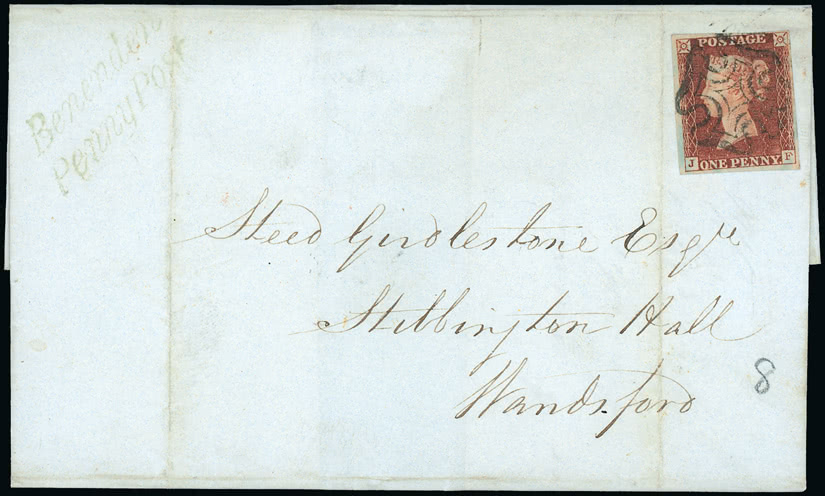 Benenden
Penny Post
POSTAGE
J ONE PENNY F
Steed Girdlestone Esqre
Stibbington Hall
Wandsford
8